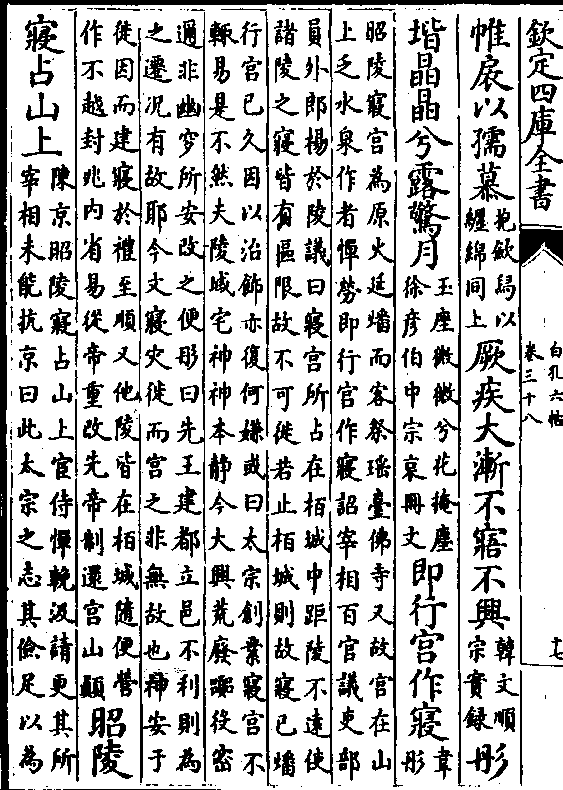 欽定四庫全書
白孔六帖
卷三十八
十七
帷扆以孺慕
抱欽鬲以
纒綿同上
厥疾大漸不寤不興
韓文順
宗實録
彤
堦晶晶兮露驚月
玉座微微兮花掩塵
徐彦伯中宗哀冊文
即行宮作寢
韋
彤
昭陵寢宮為原火廷燔而客祭瑶臺佛寺又故宮在山
上乏水泉作者憚勞即行宮作寢詔宰相百官議吏部
員外郎楊於陵議曰寢宮所占在栢城中距陵不遠使
諸陵之寢皆有區限故不可徙若止栢城則故寢已燔
行宮已久因以治飾亦復何嫌或曰太宗創業寢宮不
輙易是不然夫陵域宅神神本静今大興荒廢役密
邇非幽穸所安改之便彤曰先王建都立邑不利則為
之遷况有故耶今文寢灾徙而宮之非無故也神安于
徙因而建寢於禮至順又他陵皆在栢城隨便營
作不越封兆内省易從帝重改先帝制還宮山顛
昭陵
寢占山上
陳京昭陵寢占山上官侍憚輓汲請更其所
宰相未能抗京曰此太宗之志其儉足以為